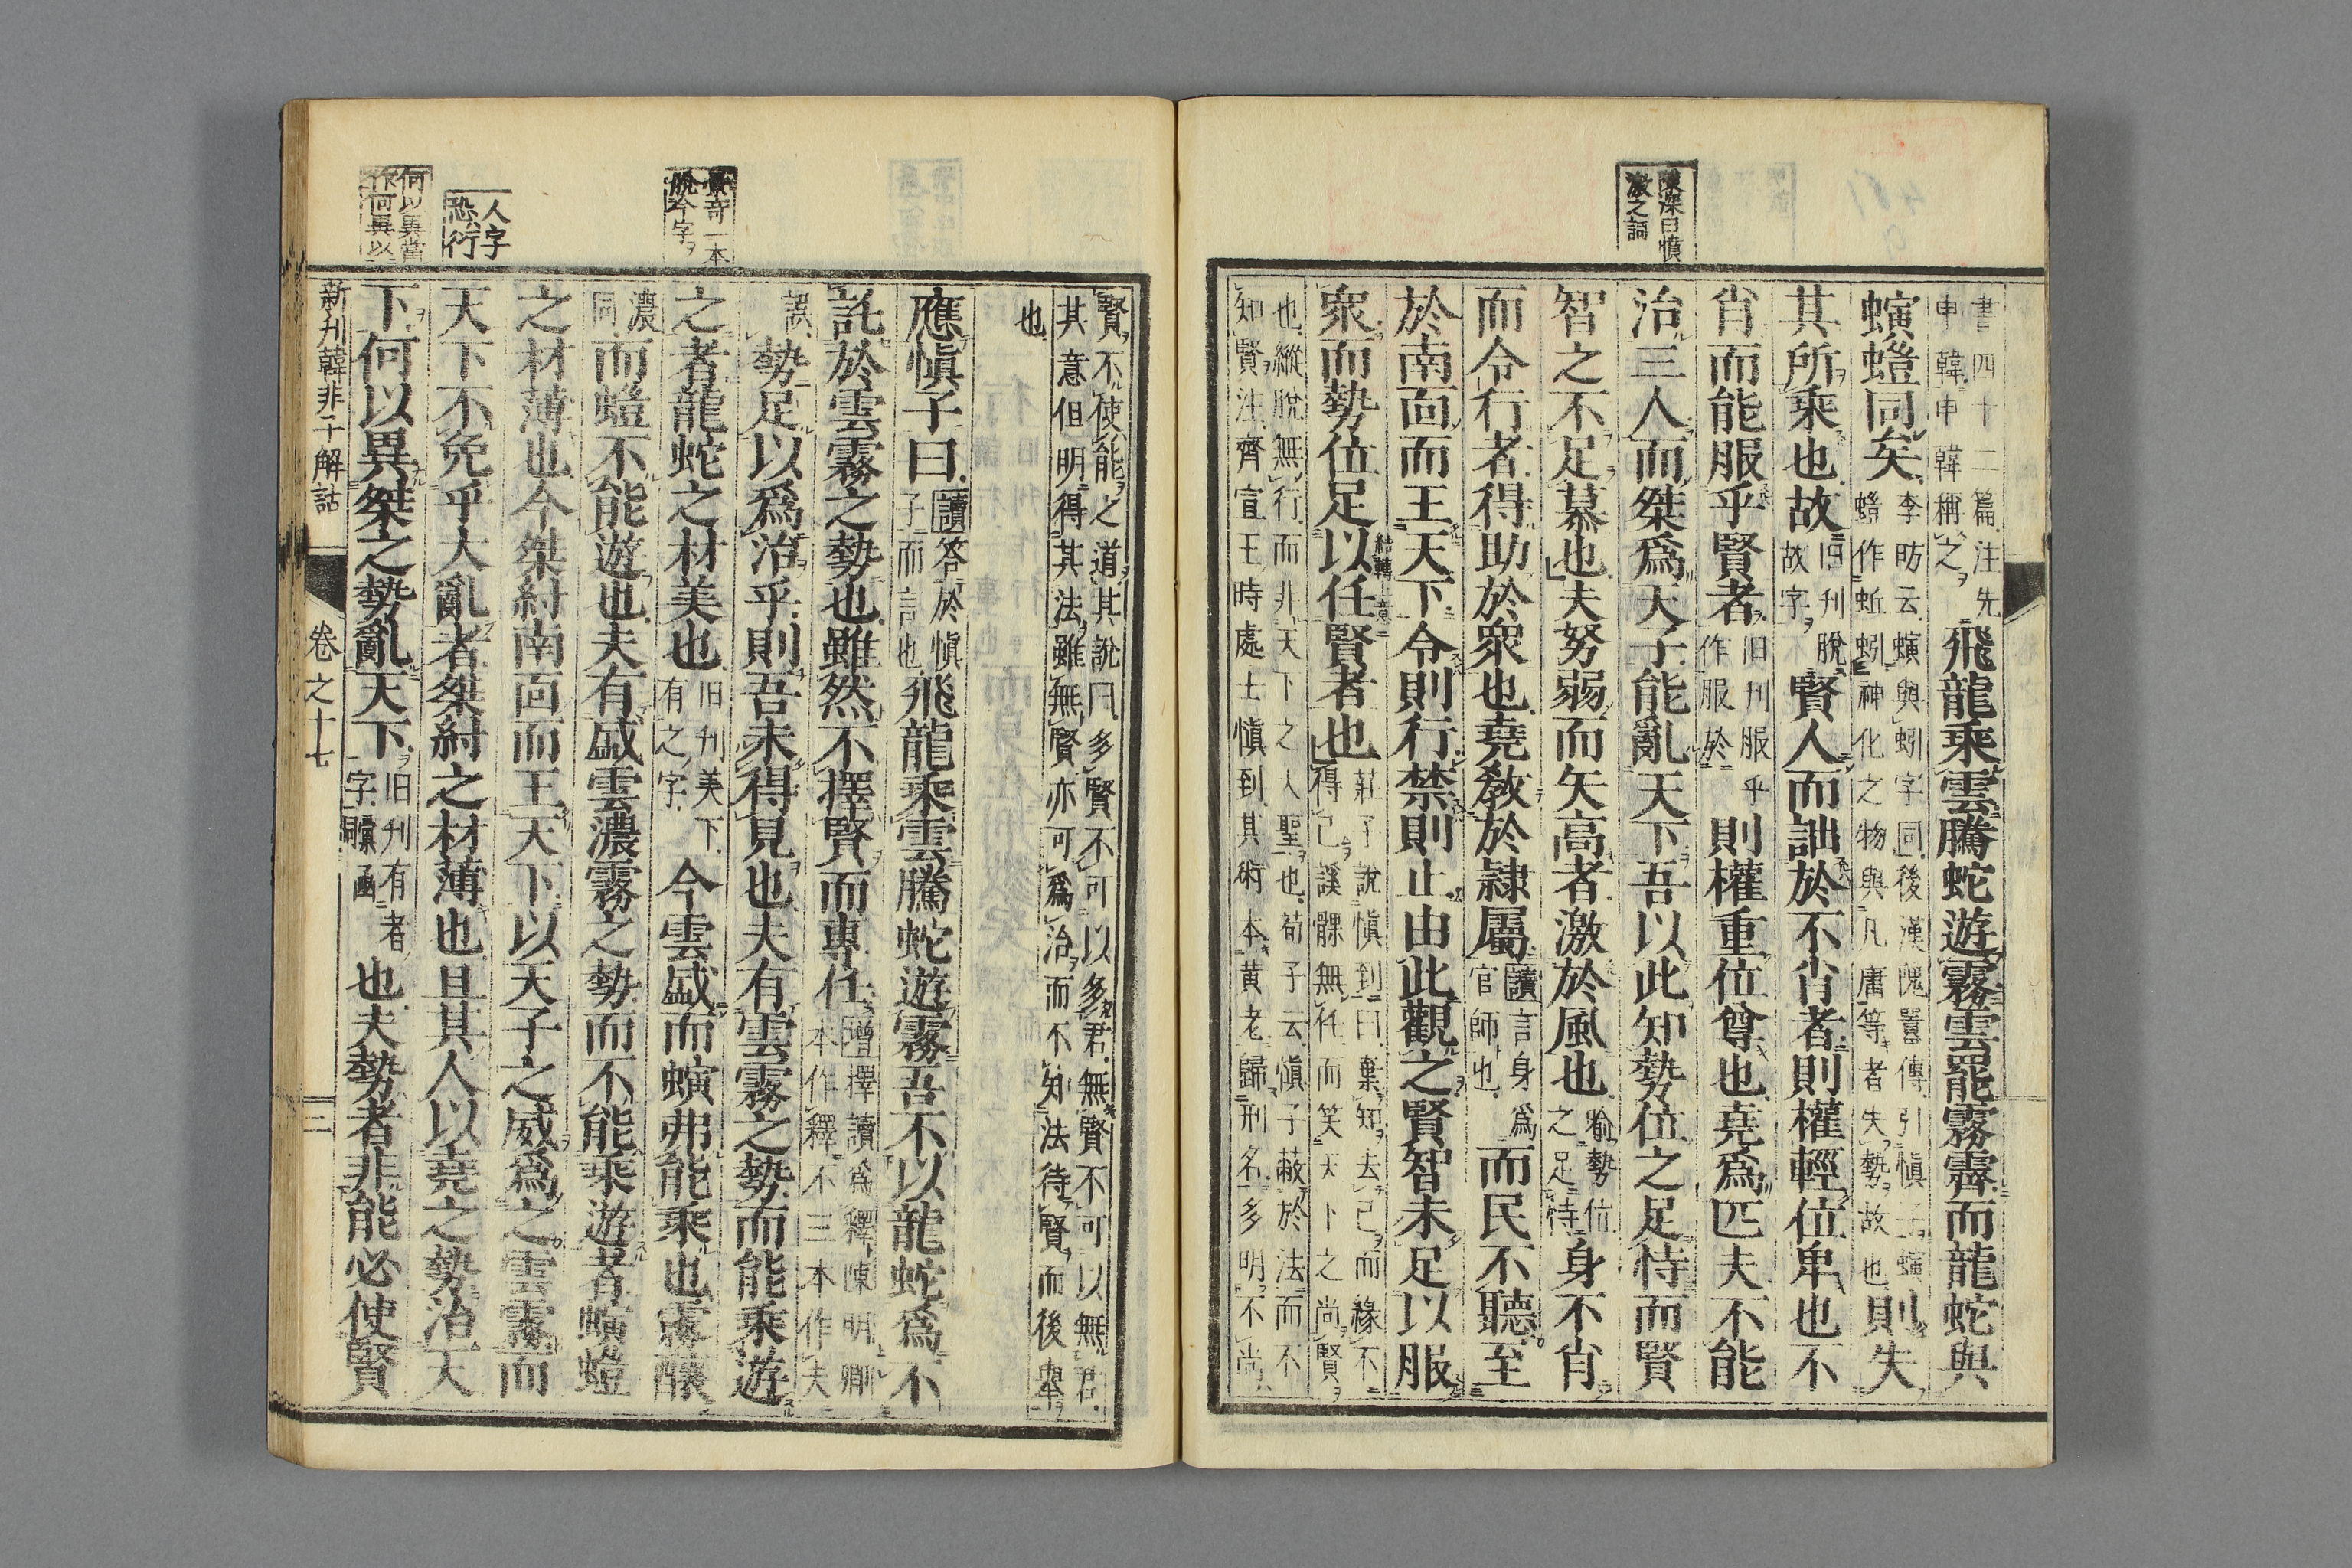 陳深曰憤
激之詞
書四十二篇注先
申韓申韓稱之
飛龍乘雲騰蛇遊霧雲罷霧霽而龍蛇與
螾螘同矣
李昉云螾與蚓字同後漢隗囂傳引愼子螾
螘作蚯蚓神化之物與凡庸等者失勢故也
則失
其所乘也故
旧刋脫
故字
賢人而詘於不肖者則權輕位卑也不
肖而能服乎賢者
旧刋服乎
作服於
則權重位尊也堯爲匹夫不能
治三人而桀爲天子能亂天下吾以此知勢位之足恃而賢
智之不足慕也夫弩弱而矢高者激於風也
喻勢位
之足恃
身不肖
而令行者得助於衆也堯敎於隷屬
讀言身爲
官師也
而民不聽至
於南面而王天下令則行禁則止由此觀之賢智未足以服
衆而勢位足以任賢者也
結轉一意
莊子說愼到曰棄知去己而緣不
得已謑髁無任而笑天下之尚賢
也縱脫無行而非天下之大聖也荀子云愼子蔽於法而不
知賢注齊宣王時處士愼到其術本黃老歸刑名多明不尚
賢不使能之道其說曰多賢不可以多君無賢不可以無君
其意但明得其法雖無賢亦可爲治而不知法待賢而後舉
也
應愼子曰
讀答於愼
子而言也
飛龍乘雲騰蛇遊霧吾不以龍蛇爲不
託於雲霧之勢也雖然不擇賢而專任
增擇讀爲釋陳明卿
本作釋不三本作夫
誤
勢足以爲治乎則吾未得見也夫有雲霧之勢而能乘遊
之者龍蛇之材美也
旧刋美下
有之字
今雲盛而螾弗能乘也霧醲
濃
同
而螘不能遊也夫有盛雲濃霧之勢而不能乘遊者螾螘
之材薄也今桀紂南面而王天下以天子之威爲之雲霧而
天下不免乎大亂者桀紂之材薄也且其人以堯之勢治天
下何以異桀之勢亂天下
旧刋有者
字
也夫勢者非能必使賢
一本
脫今字
人字
恐衍
何以異當
作何異以
新刋韓非子解詁
卷之十七
三